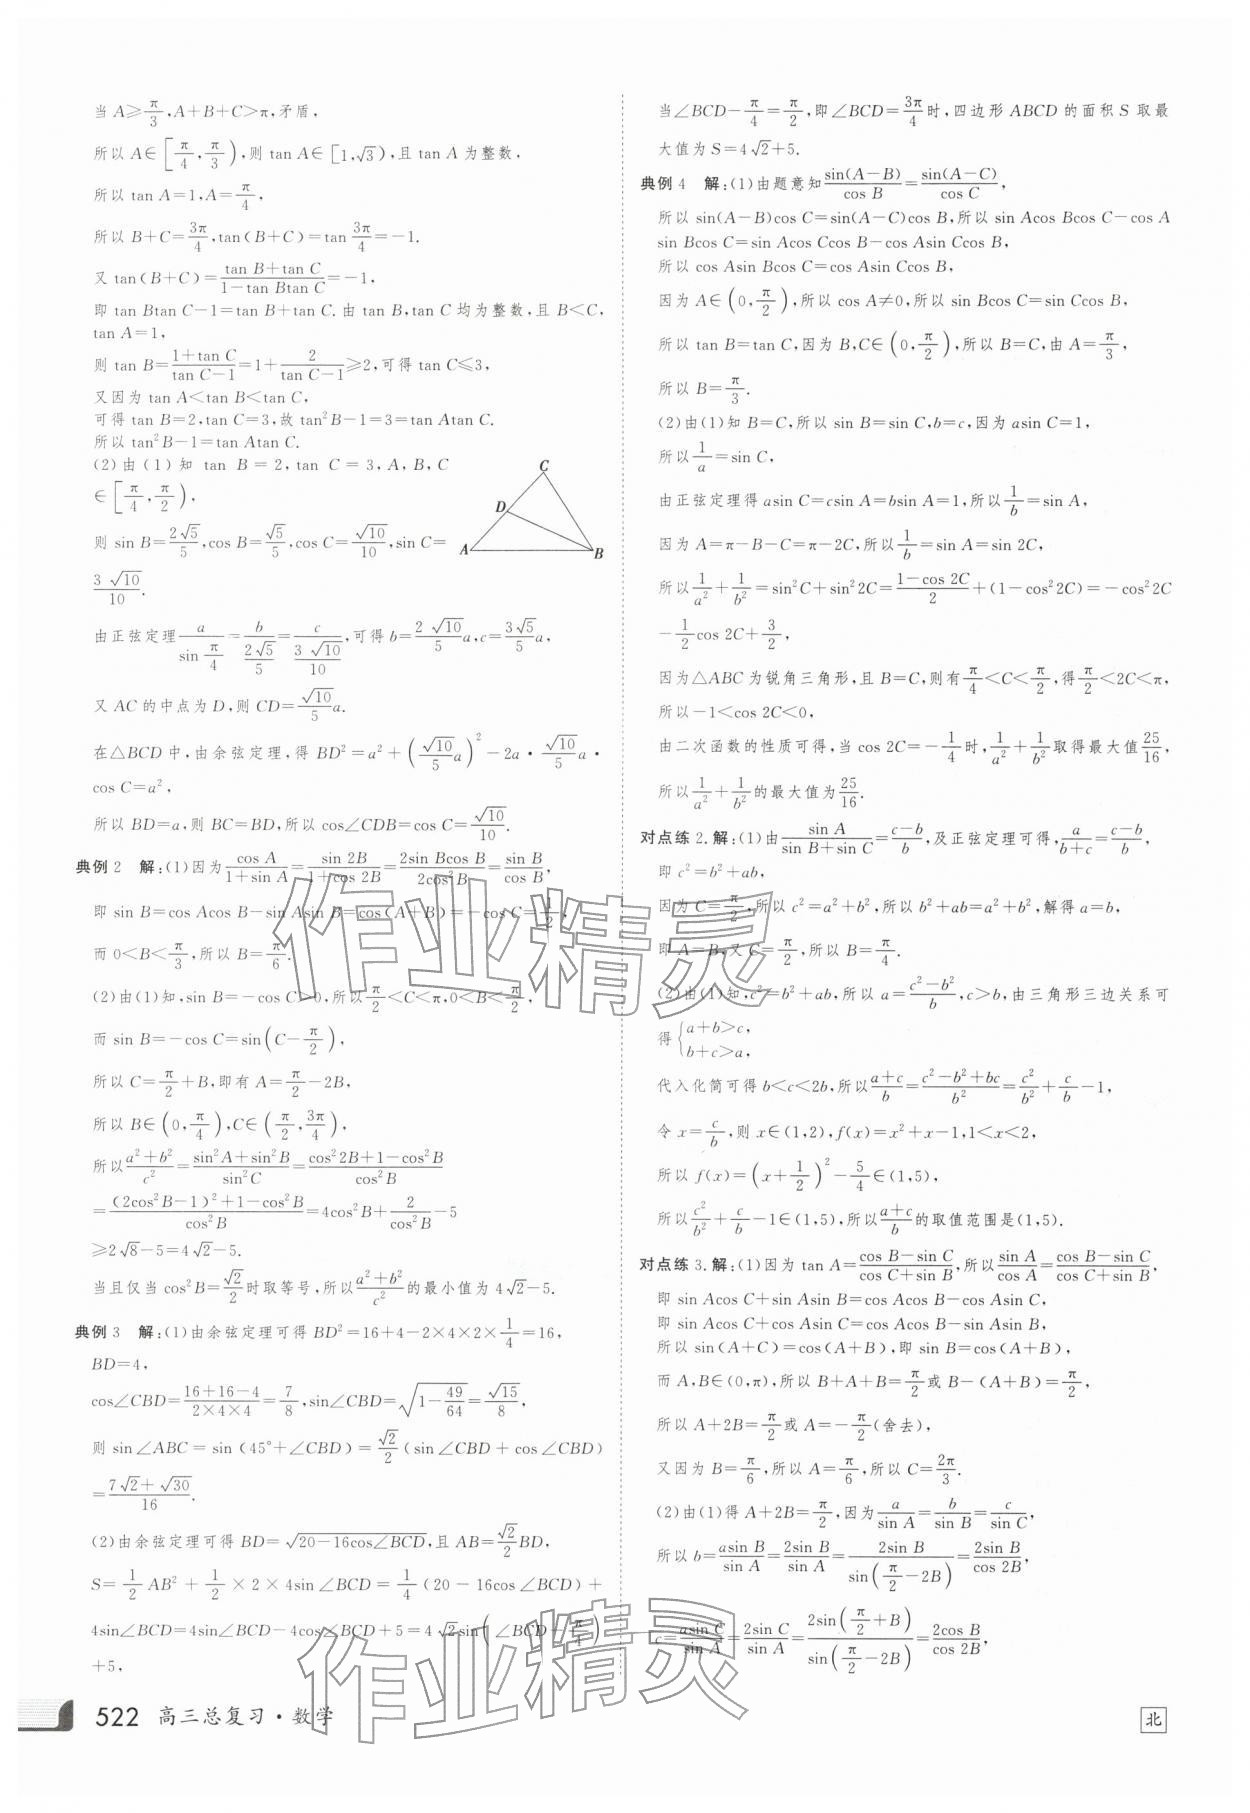 当 A≥π/3,A+B+C>π,矛盾,
所以 A∈[π/4,π/3),则 tan A∈[1,√3),且 tan A 为整数,
所以 tan A=1,A=π/4,
所以 B+C=3π/4,tan(B+C)=tan 3π/4=-1.
又 tan(B+C)=(tan B+tan C)/(1-tan Btan C)=-1,
即 tan Btan C-1=tan B+tan C.由 tan B,tan C 均为整数,且 B<C,
tan A=1,
则 tan B=(1+tan C)/(tan C-1)=1+2/(tan C-1)≥2,可得 tan C≤3,
又因为 tan A<tan B<tan C,
可得 tan B=2,tan C=3,故 tan²B-1=3=tan Atan C.
所以 tan²B-1=tan Atan C.
(2)由(1)知 tan B=2,tan C=3,A,B,C
∈[π/4,π/2),
则 sin B=2√5/5,cos B=√5/5,cos C=√10/10,sin C=
3√10/10.
C
D
A
B
由正弦定理 a/(sin π/4)=b/(2√5/5)=c/(3√10/10),可得 b=2√10/5 a,c=3√5/5 a,
又 AC 的中点为 D,则 CD=√10/5 a.
在△BCD 中,由余弦定理,得 BD²=a²+(√10/5 a)²-2a·√10/5 a·
cos C=a²,
所以 BD=a,则 BC=BD,所以 cos∠CDB=cos C=√10/10.
典例 2 解:(1)因为 cos A/(1+sin A)=sin 2B/(1+cos 2B)=2sin Bcos B/2cos²B=sin B/cos B,
即 sin B=cos Acos B-sin Asin B=cos(A+B)=-cos C=1/2,
而 0<B<π/3,所以 B=π/6.
(2)由(1)知,sin B=-cos C>0,所以 π/2<C<π,0<B<π/2,
而 sin B=-cos C=sin(C-π/2),
所以 C=π/2+B,即有 A=π/2-2B,
所以 B∈(0,π/4),C∈(π/2,3π/4),
所以 (a²+b²)/c²=(sin²A+sin²B)/sin²C=(cos²2B+1-cos²B)/cos²B
=((2cos²B-1)²+1-cos²B)/cos²B=4cos²B+2/cos²B-5
≥2√8-5=4√2-5.
当且仅当 cos²B=√2/2 时取等号,所以 (a²+b²)/c² 的最小值为 4√2-5.
典例 3 解:(1)由余弦定理可得 BD²=16+4-2×4×2×1/4=16,
BD=4,
cos∠CBD=(16+16-4)/(2×4×4)=7/8,sin∠CBD=√(1-49/64)=√15/8,
则 sin∠ABC=sin(45°+∠CBD)=√2/2(sin∠CBD+cos∠CBD)
=(7√2+√30)/16.
(2)由余弦定理可得 BD=√(20-16cos∠BCD),且 AB=√2/2 BD,
S=1/2 AB²+1/2×2×4sin∠BCD=1/4(20-16cos∠BCD)+
4sin∠BCD=4sin∠BCD-4cos∠BCD+5=4√2sin(∠BCD-π/4)
+5,
522 高三总复习·数学
当∠BCD-π/4=π/2,即∠BCD=3π/4时,四边形 ABCD 的面积 S 取最
大值为 S=4√2+5.
典例 4 解:(1)由题意知 sin(A-B)/cos B=sin(A-C)/cos C,
所以 sin(A-B)cos C=sin(A-C)cos B,所以 sin Acos Bcos C-cos A
sin Bcos C=sin Acos Ccos B-cos Asin Ccos B,
所以 cos Asin Bcos C=cos Asin Ccos B,
因为 A∈(0,π/2),所以 cos A≠0,所以 sin Bcos C=sin Ccos B,
所以 tan B=tan C,因为 B,C∈(0,π/2),所以 B=C,由 A=π/3,
所以 B=π/3.
(2)由(1)知 B=C,所以 sin B=sin C,b=c,因为 asin C=1,
所以 1/a=sin C,
由正弦定理得 asin C=csin A=bsin A=1,所以 1/b=sin A,
因为 A=π-B-C=π-2C,所以 1/b=sin A=sin 2C,
所以 1/a²+1/b²=sin²C+sin²2C=(1-cos 2C)/2+(1-cos²2C)=-cos²2C
-1/2cos 2C+3/2,
因为△ABC 为锐角三角形,且 B=C,则有 π/4<C<π/2,得 π/2<2C<π,
所以-1<cos 2C<0,
由二次函数的性质可得,当 cos 2C=-1/4时,1/a²+1/b²取得最大值25/16,
所以 1/a²+1/b²的最大值为25/16.
对点练 2.解:(1)由 sin A/(sin B+sin C)=(c-b)/b,及正弦定理可得,a/(b+c)=(c-b)/b,
即 c²=b²+ab,
因为 C=π/2,所以 c²=a²+b²,所以 b²+ab=a²+b²,解得 a=b,
即 A=B,又 C=π/2,所以 B=π/4.
(2)由(1)知,c²=b²+ab,所以 a=(c²-b²)/b,c>b,由三角形三边关系可
得{a+b>c,
b+c>a,
代入化简可得 b<c<2b,所以 (a+c)/b=(c²-b²+bc)/b²=c²/b²+c/b-1,
令 x=c/b,则 x∈(1,2),f(x)=x²+x-1,1<x<2,
所以 f(x)=(x+1/2)²-5/4∈(1,5),
所以 c²/b²+c/b-1∈(1,5),所以 (a+c)/b 的取值范围是(1,5).
对点练 3.解:(1)因为 tan A=(cos B-sin C)/(cos C+sin B),所以 sin A/cos A=(cos B-sin C)/(cos C+sin B),
即 sin Acos C+sin Asin B=cos Acos B-cos Asin C,
即 sin Acos C+cos Asin C=cos Acos B-sin Asin B,
所以 sin(A+C)=cos(A+B),即 sin B=cos(A+B),
而 A,B∈(0,π),所以 B+A+B=π/2或 B-(A+B)=π/2,
所以 A+2B=π/2或 A=-π/2(舍去),
又因为 B=π/6,所以 A=π/6,所以 C=2π/3.
(2)由(1)得 A+2B=π/2,因为 a/sin A=b/sin B=c/sin C,
所以 b=asin B/sin A=2sin B/sin A=2sin B/sin(π/2-2B)=2sin B/cos 2B,
c=asin C/sin A=2sin C/sin A=2sin(π/2+B)/sin(π/2-2B)=2cos B/cos 2B,
北
作业精灵
作业精灵